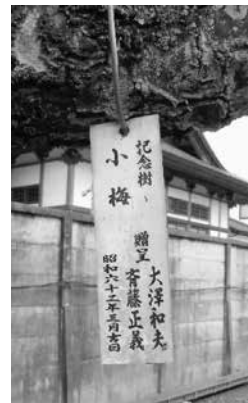 記念樹
小梅
贈呈
大澤和夫
斉藤正義
昭和六十三年三月吉日